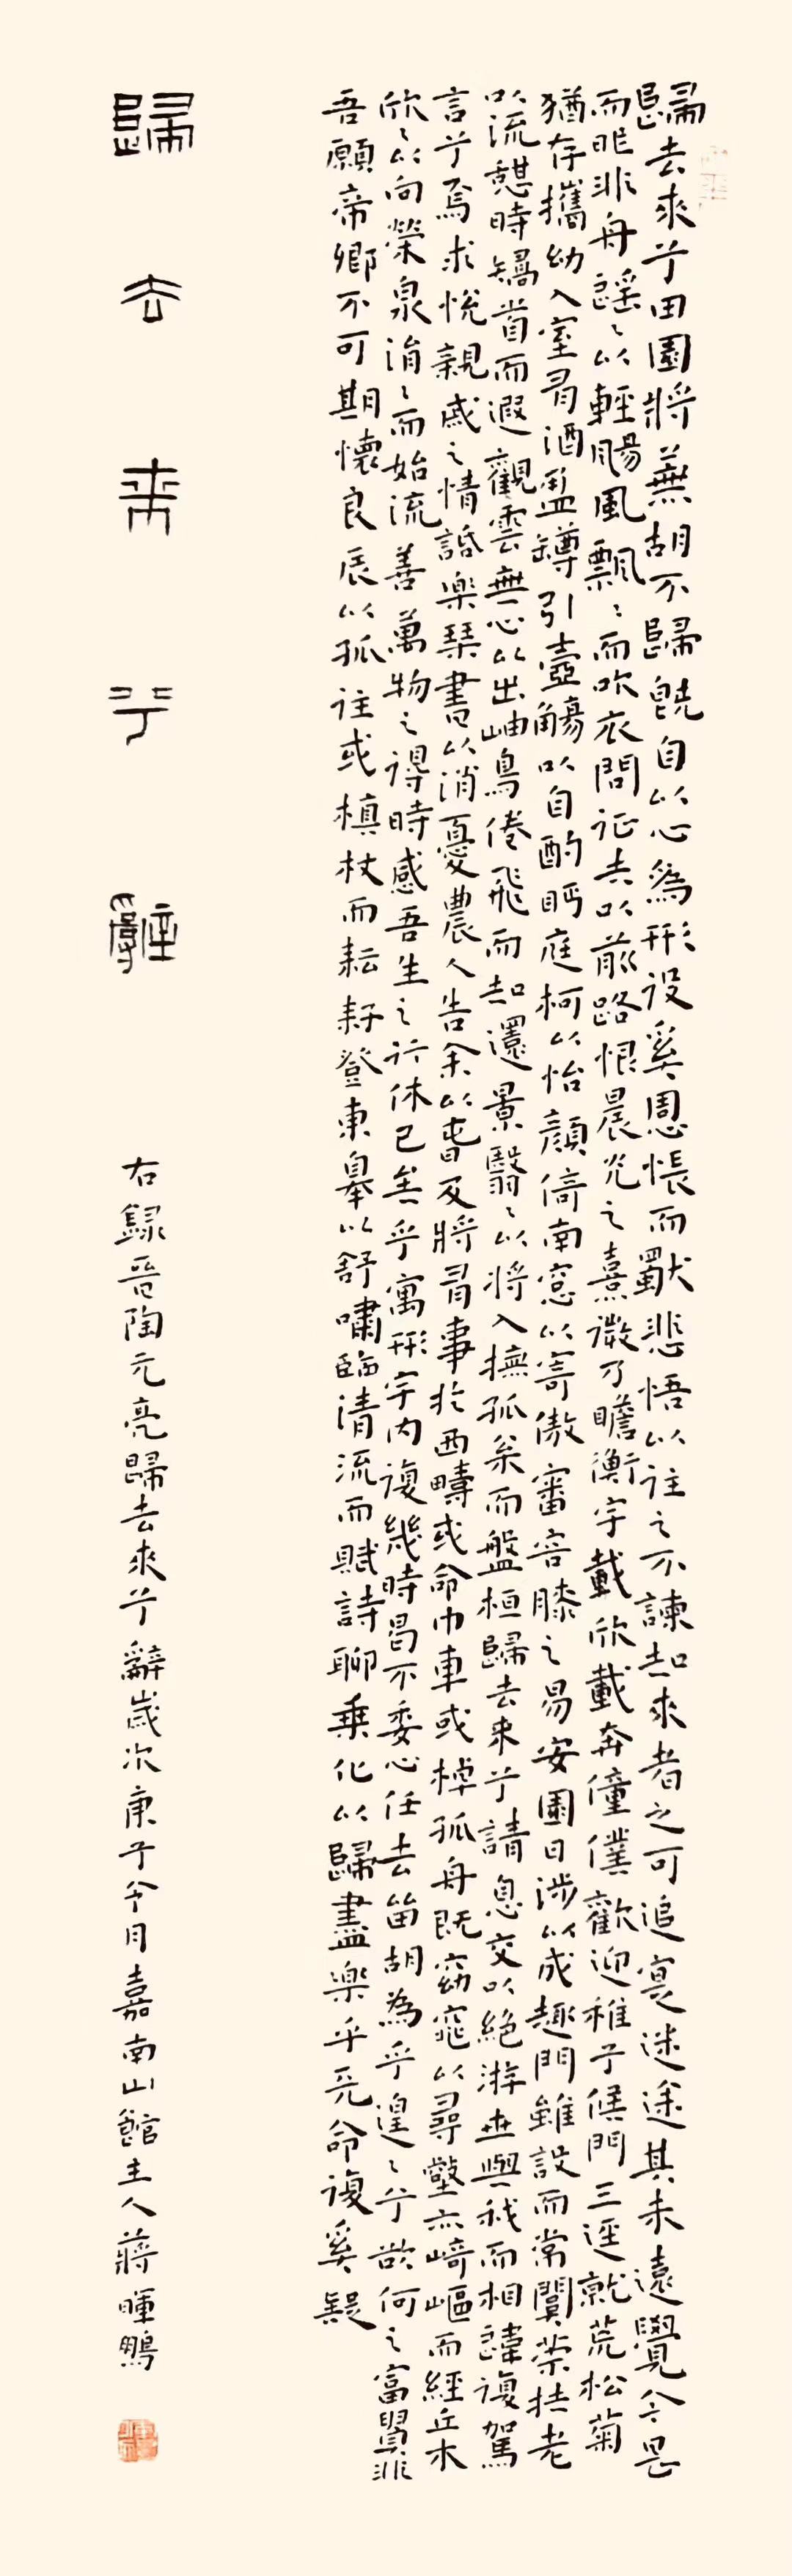 歸去來兮田園將蕪胡不歸既自以心為形役奚惆悵而獨悲悟以往之不諫知來者之可追寔迷途其未遠覺今是
而昨非舟謠〻以輕颺風飄〻而吹衣問征夫以前路恨晨光之熹微乃瞻衡宇載欣載奔僮僕歡迎稚子候門三逕就荒松菊
猶存攜幼入室有酒盈罇引壺觴以自酌眄庭柯以怡顏倚南窓以寄傲審容膝之易安園日涉以成趣門雖設而常關策扶老
以流憩時矯首而遐觀雲無心以出岫鳥倦飛而知還景翳〻以將入撫孤松而盤桓歸去來兮請息交以絕游世與我而相違復駕
言兮焉求悅親戚之情話樂琴書以消憂農人告余以春及將有事於西疇或命巾車或棹孤舟既窈窕以尋壑亦崎嶇而經丘木
欣〻以向榮泉涓〻而始流善萬物之得時感吾生之行休已矣乎寓形宇內復幾時曷不委心任去留胡為乎遑〻兮欲何之富貴非
吾願帝鄉不可期懷良辰以孤往或植杖而耘耔登東皋以舒嘯臨清流而賦詩聊乘化以歸盡樂乎天命復奚疑
歸去來兮辭
右錄晉陶元亮歸去來兮辭歲次庚子冬月嘉南山館主人蔣暉鵬